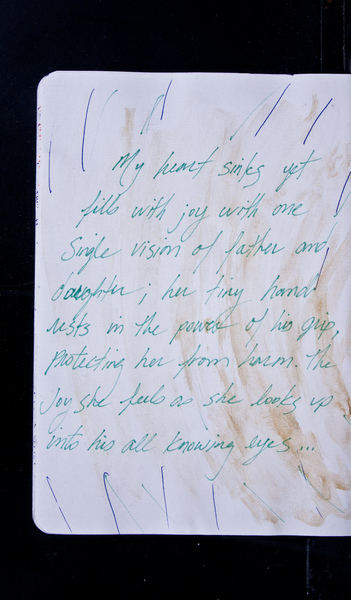 My heart sinks yet
fills with joy with one
single vision of father and
daughter; her tiny hand
rests in the power of his grip,
protecting her from harm. The
joy she feels as she looks up
into his all knowing eyes...